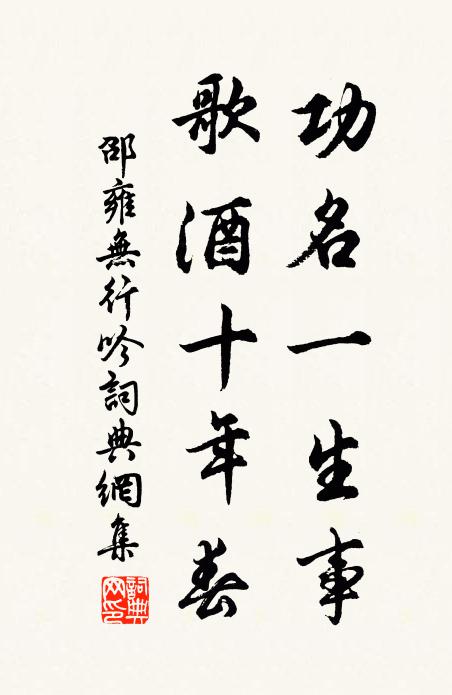 功名一生事
歌酒十年春
邵雍無行吟詞典網集
詞典网印